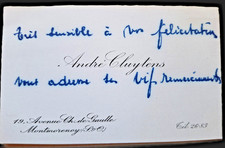 Très sensible à vos félicitations
André Cluytens
vous adresse ses vifs remerciements
19, Avenue Ch. de Gaulle
Montmorency (S&O)
Tél. 26-83